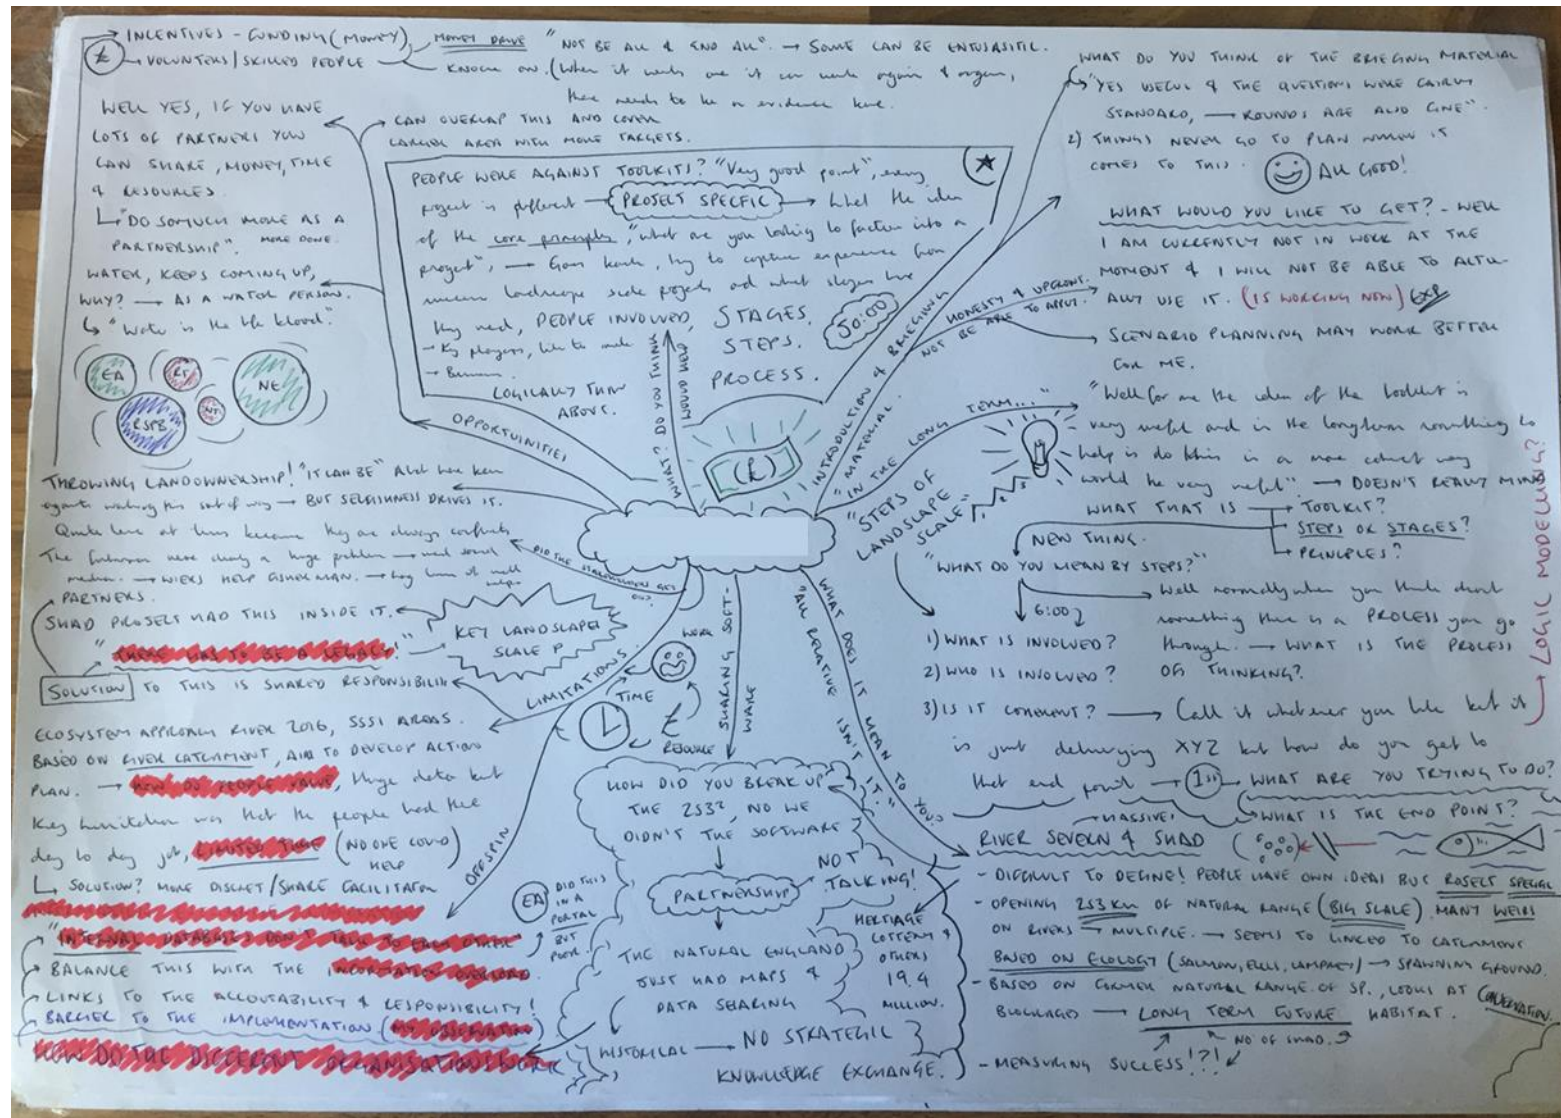 INCENTIVES - FUNDING (MONEY)
VOLUNTERS / SKILLED PEOPLE
£
MONEY DRIVE "NOT BE ALL & END ALL". → SOME CAN BE ENTUSASITIC.
KNOCK ON. (When it works one it can work again & again,
there needs to be an evidence base.
WELL YES, IF YOU HAVE
LOTS OF PARTNERS YOU
CAN SHARE, MONEY, TIME
& RESOURCES.
"DO SOMUCH MORE AS A
PARTNERSHIP". MORE DONE.
CAN OVERLAP THIS AND COVER
LARGER AREA WITH MORE TARGETS.
WATER, KEEPS COMING UP,
WHY? → AS A WATER PERSON.
"Water is the life blood."
EA
RT
NE
RSPB
NT
OPPORTUINITIES
PEOPLE WERE AGAINST TOOLKITS? "Very good point", every
project is different → PROJECT SPECFIC → liked the idea
of the core principles, "what are you looking to factor into a
project", → Gone back, try to capture experience from
landscape scale projects and what stages have
they used, PEOPLE INVOLVED, STAGES.
→ Key players, like to make
STEPS.
→ Business
PROCESS.
50:00
LOGICALLY THIN
ABOVE.
WHAT: DO YOU THINK
WOULD HELP
(£)
INTRODUCTION & BRIEFING
"MATERIAL.
WHAT DO YOU THINK OF THE BRIEFING MATERIAL
"YES USEFUL & THE QUESTIONS WERE FAIRLY
STANDARD, → ROUNDS ARE ALSO FINE".
2) THINGS NEVER GO TO PLAN WHEN IT
COMES TO THIS. ALL GOOD!
WHAT WOULD YOU LIKE TO GET? - WELL
I AM CURRENTLY NOT IN WORK AT THE
MOMENT & I WILL NOT BE ABLE TO ACTU-
ALLY USE IT. (IS WORKING NOW) EXP
HONESTY & UPFRONT.
NOT BE ABLE TO APPLY.
SCENARIO PLANNING MAY WORK BETTER
FOR ME.
"IN THE LONG TERM..."
"Well for me the idea of the booklet is
very useful and in the longterm something to
help is do this in a more way
would be very useful". → DOESN'T REALLY MIND
WHAT THAT IS → TOOLKIT?
STEPS OR STAGES?
PRINCIPLES?
LOGIC MODELLING?
1 2 3
"STEPS OF
LANDSLAPE
SCALE"
NEW THING.
"WHAT DO YOU MEAN BY STEPS?"
6:00
Well normally when you think about
something there is a PROCESS you go
through. → WHAT IS THE PROCESS
OF THINKING?
1) WHAT IS INVOLVED?
2) WHO IS INVOLVED?
3) IS IT COHERENT? → Call it whatever you like but it
is just delivering XYZ but how do you get to
that end point → 1st → WHAT ARE YOU TRYING TO DO?
WHAT IS THE END POINT?
THROWING LANDOWNERSHIP! "IT CAN BE"
→ BUT SELFISHNESS DRIVES IT.
Quite hard at times because they are always conflicts
The fisherman were clearly a huge problem → used social
media. → WIERS HELP FISHERMAN.
PARTNERS.
SHAD PROJECT HAD THIS INSIDE IT.
"THERE HAS TO BE A LEGACY!"
KEY LANDSLAPE
SCALE P
SOLUTION TO THIS IS SHARED RESPONSIBILI
LIMITATIONS.
WORK
TIME
£
RESOURCE
ECOSYSTEM APPROACH RIVER 2016, SSSI AREAS.
BASED ON RIVER CATCHMENT, AIM TO DEVELOP ACTION
PLAN. → HOW DO PEOPLE VALUE, Huge data but
Key limitation was that the people had the
day to day job, LIMITED TIME (NO ONE COULD
HELP)
SOLUTION? MORE DISCRET / SHARE FACILITATOR
OFFSPIN
"INTERNAL DATABASES DON'T TALK TO EACH OTHER"
EA DID THIS
IN A
PORTAL
BUT
POOR.
BALANCE THIS WITH THE INFORMATION OVERLOAD
LINKS TO THE ACCOUTABILITY & RESPONSIBILITY!
BARRIER TO THE IMPLEMENTATION. (MY OBSERVATION)
HOW DO THE DIFFERENT ORGANISATIONS WORK
SHARING SOFT-
WARE
HOW DID YOU BREAK UP
THE 253?, NO WE
DIDN'T THE SOFTWARE
PARTNERSHIP
NOT
TALKING!
THE NATURAL ENGLAND
JUST HAD MAPS &
DATA SHARING
HISTORICAL → NO STRATEGIC
KNOWLEDGE EXCHANGE.
HERTIAGE
LOTTERY &
OTHERS
19.4
MILLION.
WHAT DOES IT MEAN TO YOU?
"ALL RELATIVE ISN'T IT."
MASSIVE!
RIVER SEVERN & SHAD
- DIFFICULT TO DEFINE! PEOPLE HAVE OWN IDEAS BUT SPECIAL
- OPENING 253 KM OF NATURAL RANGE (BIG SCALE). MANY WEIRS
ON RIVERS → MULTIPLE. → SEEMS TO LINKED TO CATCHMENT
BASED ON ECOLOGY (SALMON, EELS, LAMPREY) → SPAWNING GROUND.
- BASED ON FORMER NATURAL RANGE OF SP., LOOKS AT CONSERVATION.
BLOCKAGES → LONG TERM FUTURE HABITAT.
NO OF SHAD.
- MEASURING SUCCESS!?!